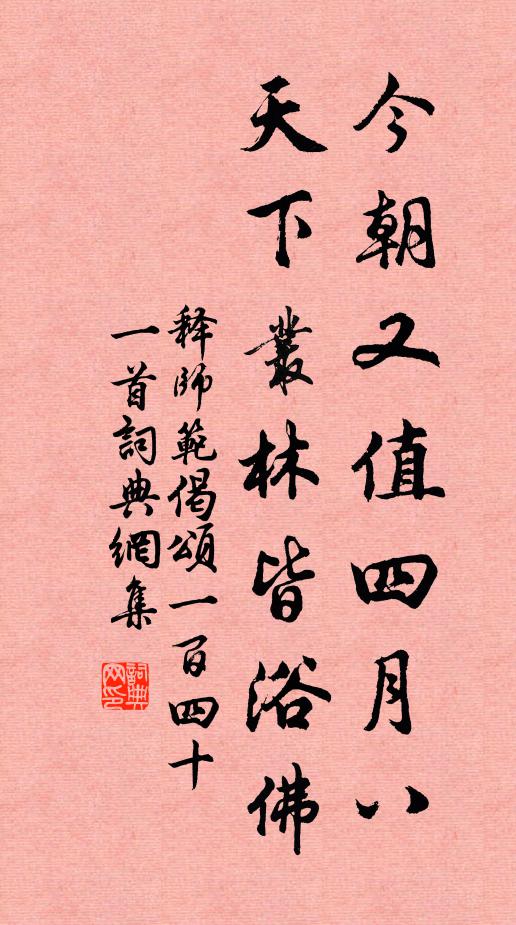 今朝又值四月八
天下叢林皆浴佛
释師範偈頌一百四十
一首詞典網集
詞典网印